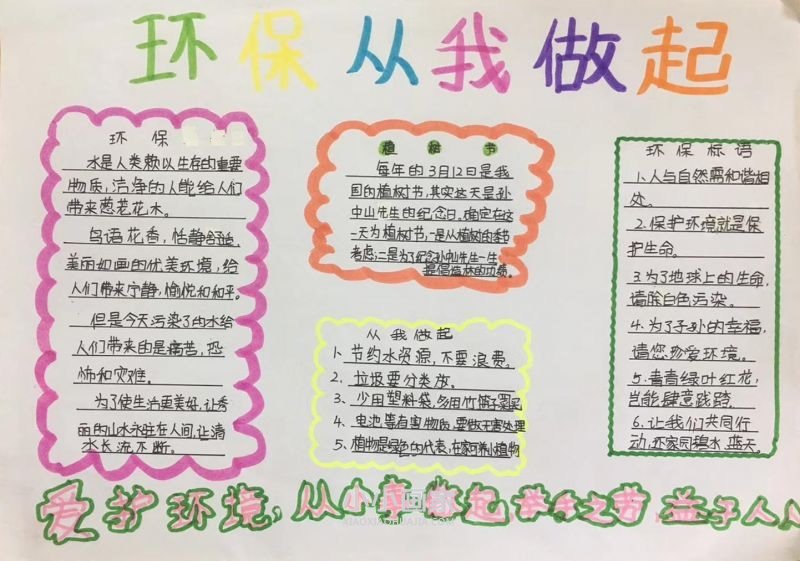 环保从我做起
环保
水是人类赖以生存的重要
物质,洁净的水能给人们
带来葱茏花木。
鸟语花香,恬静舒适,
美丽如画的优美环境,给
人们带来宁静,愉悦和和平。
但是今天污染了的水给
人们带来的是痛苦,恐
怖和灾难。
为了使生活更美好,让秀
丽的山水永驻在人间,让清
水长流不断。
植树节
每年的3月12日是我
国的植树节,其实这天是孙
中山先生的纪念日。确定在这
一天为植树节,一是从植树的季节
考虑;二是为了纪念孙中山先生一生
提倡植林的功绩。
从我做起
1、节约水资源,不要浪费。
2、垃圾要分类放。
3、少用塑料袋,多用竹篮子
4、电池等有害物质,要做无害处理
5、植物是绿色的代表,在家可养小植物
环保标语
1.人与自然需和谐相
处。
2.保护环境就是保
护生命。
3.为了地球上的生命,
请除白色污染。
4.为了子孙的幸福,
请您珍爱环境。
5.青青绿叶红花,
岂能肆意践踏。
6.让我们共同行
动,还家园碧水、蓝天。
爱护环境,从小事做起,举手之劳,益于人人
XIAOXIAOHUAJIA.COM